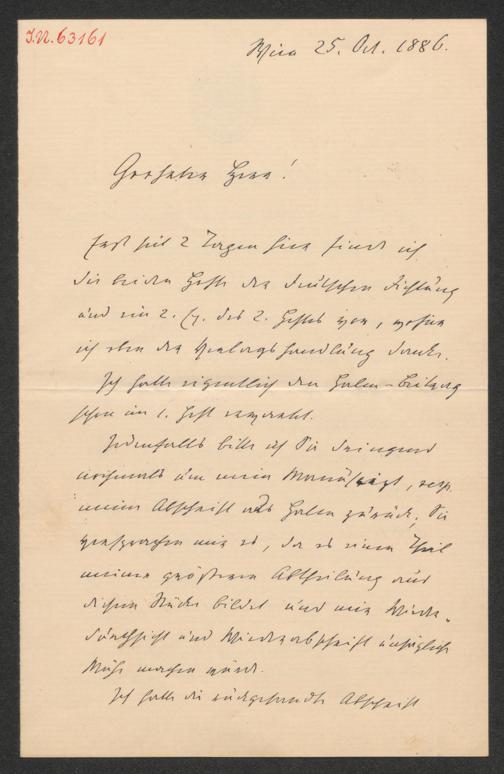 J.N. 63161
Wien 25. Oct. 1886.
Geehrter Herr!
Erst seit 2 Tagen hier finde ich
die beiden Hefte der deutschen Dichtung
und ein 2. Ex. des 2. Heftes vor, wofür
ich eben der Verlagshandlung danke.
Ich hatte eigentlich den Halm-Beitrag
schon im 1. Heft erwartet.
Jedenfalls bitte ich Sie dringend
nochmals um mein Manuscript, resp.
meine Abschrift aus Halm zurück; Sie
versprachen mir es, da es einen Theil
meiner größeren Abtheilung aus
diesem Stücke bildet und mir Wieder-
durchsicht und Wiederabschrift unsägliche
Mühe machen würde.
Ich hatte die rückgesandte Abschrift